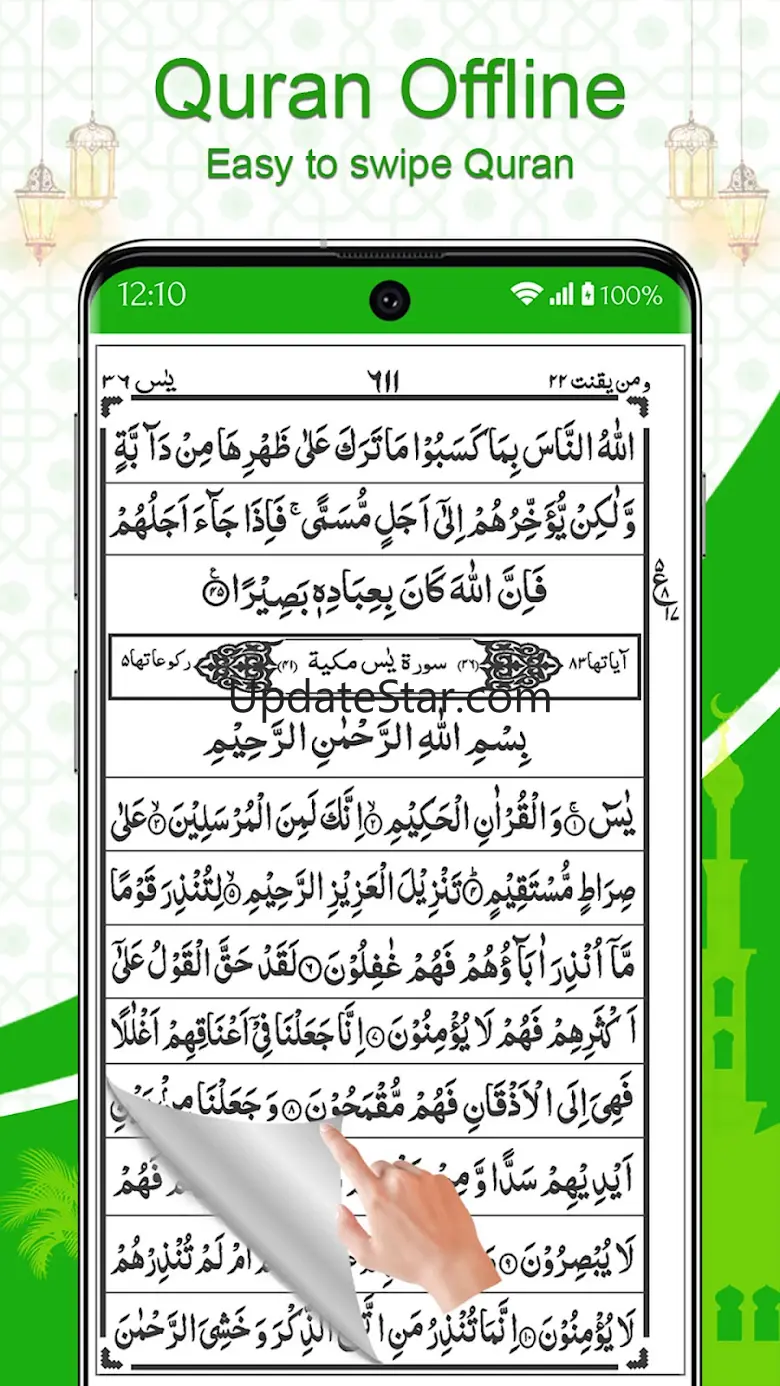 Quran Offline
Easy to swipe Quran
12:10 100%
ومن يقنت ٢٢ ٦١١ يٰس ٣٦
اللّٰهُ النَّاسَ بِمَا كَسَبُوْا مَا تَرَكَ عَلٰى ظَهْرِهَا مِنْ دَآبَّةٍ
وَّلٰكِنْ يُّؤَخِّرُهُمْ اِلٰٓى اَجَلٍ مُّسَمًّى ۚ فَاِذَا جَآءَ اَجَلُهُمْ
فَاِنَّ اللّٰهَ كَانَ بِعِبَادِهٖ بَصِيْرًا ۝٤٥
ع ٥ ٨ ١٧
آياتها ٨٣ (٣٦) سورة يٰس مكية (٤١) ركوعاتها ٥
UpdateStar.com
بِسْمِ اللّٰهِ الرَّحْمٰنِ الرَّحِيْمِ
يٰسٓ ۝١ وَالْقُرْاٰنِ الْحَكِيْمِ ۝٢ اِنَّكَ لَمِنَ الْمُرْسَلِيْنَ ۝٣ عَلٰى
صِرَاطٍ مُّسْتَقِيْمٍ ۝٤ تَنْزِيْلَ الْعَزِيْزِ الرَّحِيْمِ ۝٥ لِتُنْذِرَ قَوْمًا
مَّآ اُنْذِرَ اٰبَآؤُهُمْ فَهُمْ غٰفِلُوْنَ ۝٦ لَقَدْ حَقَّ الْقَوْلُ عَلٰٓى
اَكْثَرِهِمْ فَهُمْ لَا يُؤْمِنُوْنَ ۝٧ اِنَّا جَعَلْنَا فِيْٓ اَعْنَاقِهِمْ اَغْلٰلًا
فَهِيَ اِلَى الْاَذْقَانِ فَهُمْ مُّقْمَحُوْنَ ۝٨ وَجَعَلْنَا مِنْۢ بَيْنِ
اَيْدِيْهِمْ سَدًّا وَّمِنْ فَهُمْ
لَا يُبْصِرُوْنَ ۝٩ اَمْ لَمْ تُنْذِرْهُمْ
لَا يُؤْمِنُوْنَ ۝١٠ اِنَّمَا تُنْذِرُ مَنِ اتَّبَعَ الذِّكْرَ وَخَشِيَ الرَّحْمٰنَ